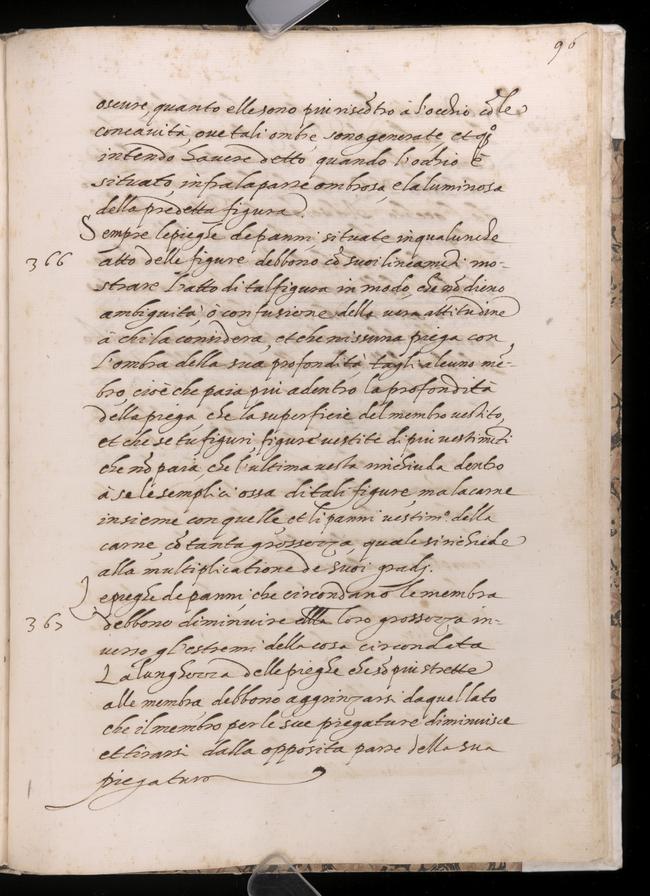 96
oscure, quanto elle sono piu riscõtro à l'occhio, cõ le
concavità, ove tali ombre sono generate et qº
intendo havere detto, quando l'ochio è
situato, infra la parte ombrosa, e la luminosa
della predetta figura.
Sempre le pieghe de panni situate in qualunche
366 atto delle figure debbono cõ suoi lineamẽti mo-
strare l'atto di tal figura in modo, che nõ dieno
ambiguità, ò confusione della vera attitudine
à chi la considera, et che nissuna piega con
l'ombra della sua profondità tagli alcuno mẽ-
bro, cioè che paia piu adentro la profondità
della piega che la superficie del membro vestito,
et che se tu figuri figure vestite di piu vestimẽti
che nõ paia che l'ultima vesta rinchiuda dentro
à se le semplici ossa di tali figure, ma la carne
insieme con quelle, et li panni vestimº della
carne cõ tanta grossezza, quale si richiede
alla multiplicatione de suoi gradj.
Le pieghe de panni che circondano le membra
367 debbono diminuire della loro grossezza in-
verso gl'estremi della cosa circondata
La lunghezza delle pieghe che sõ piu strette
alle membra debbono aggrinzarsi da quel lato
che il membro per le sue piegature diminuisce
et tirarsi dalla opposita parte della sua
piegatura